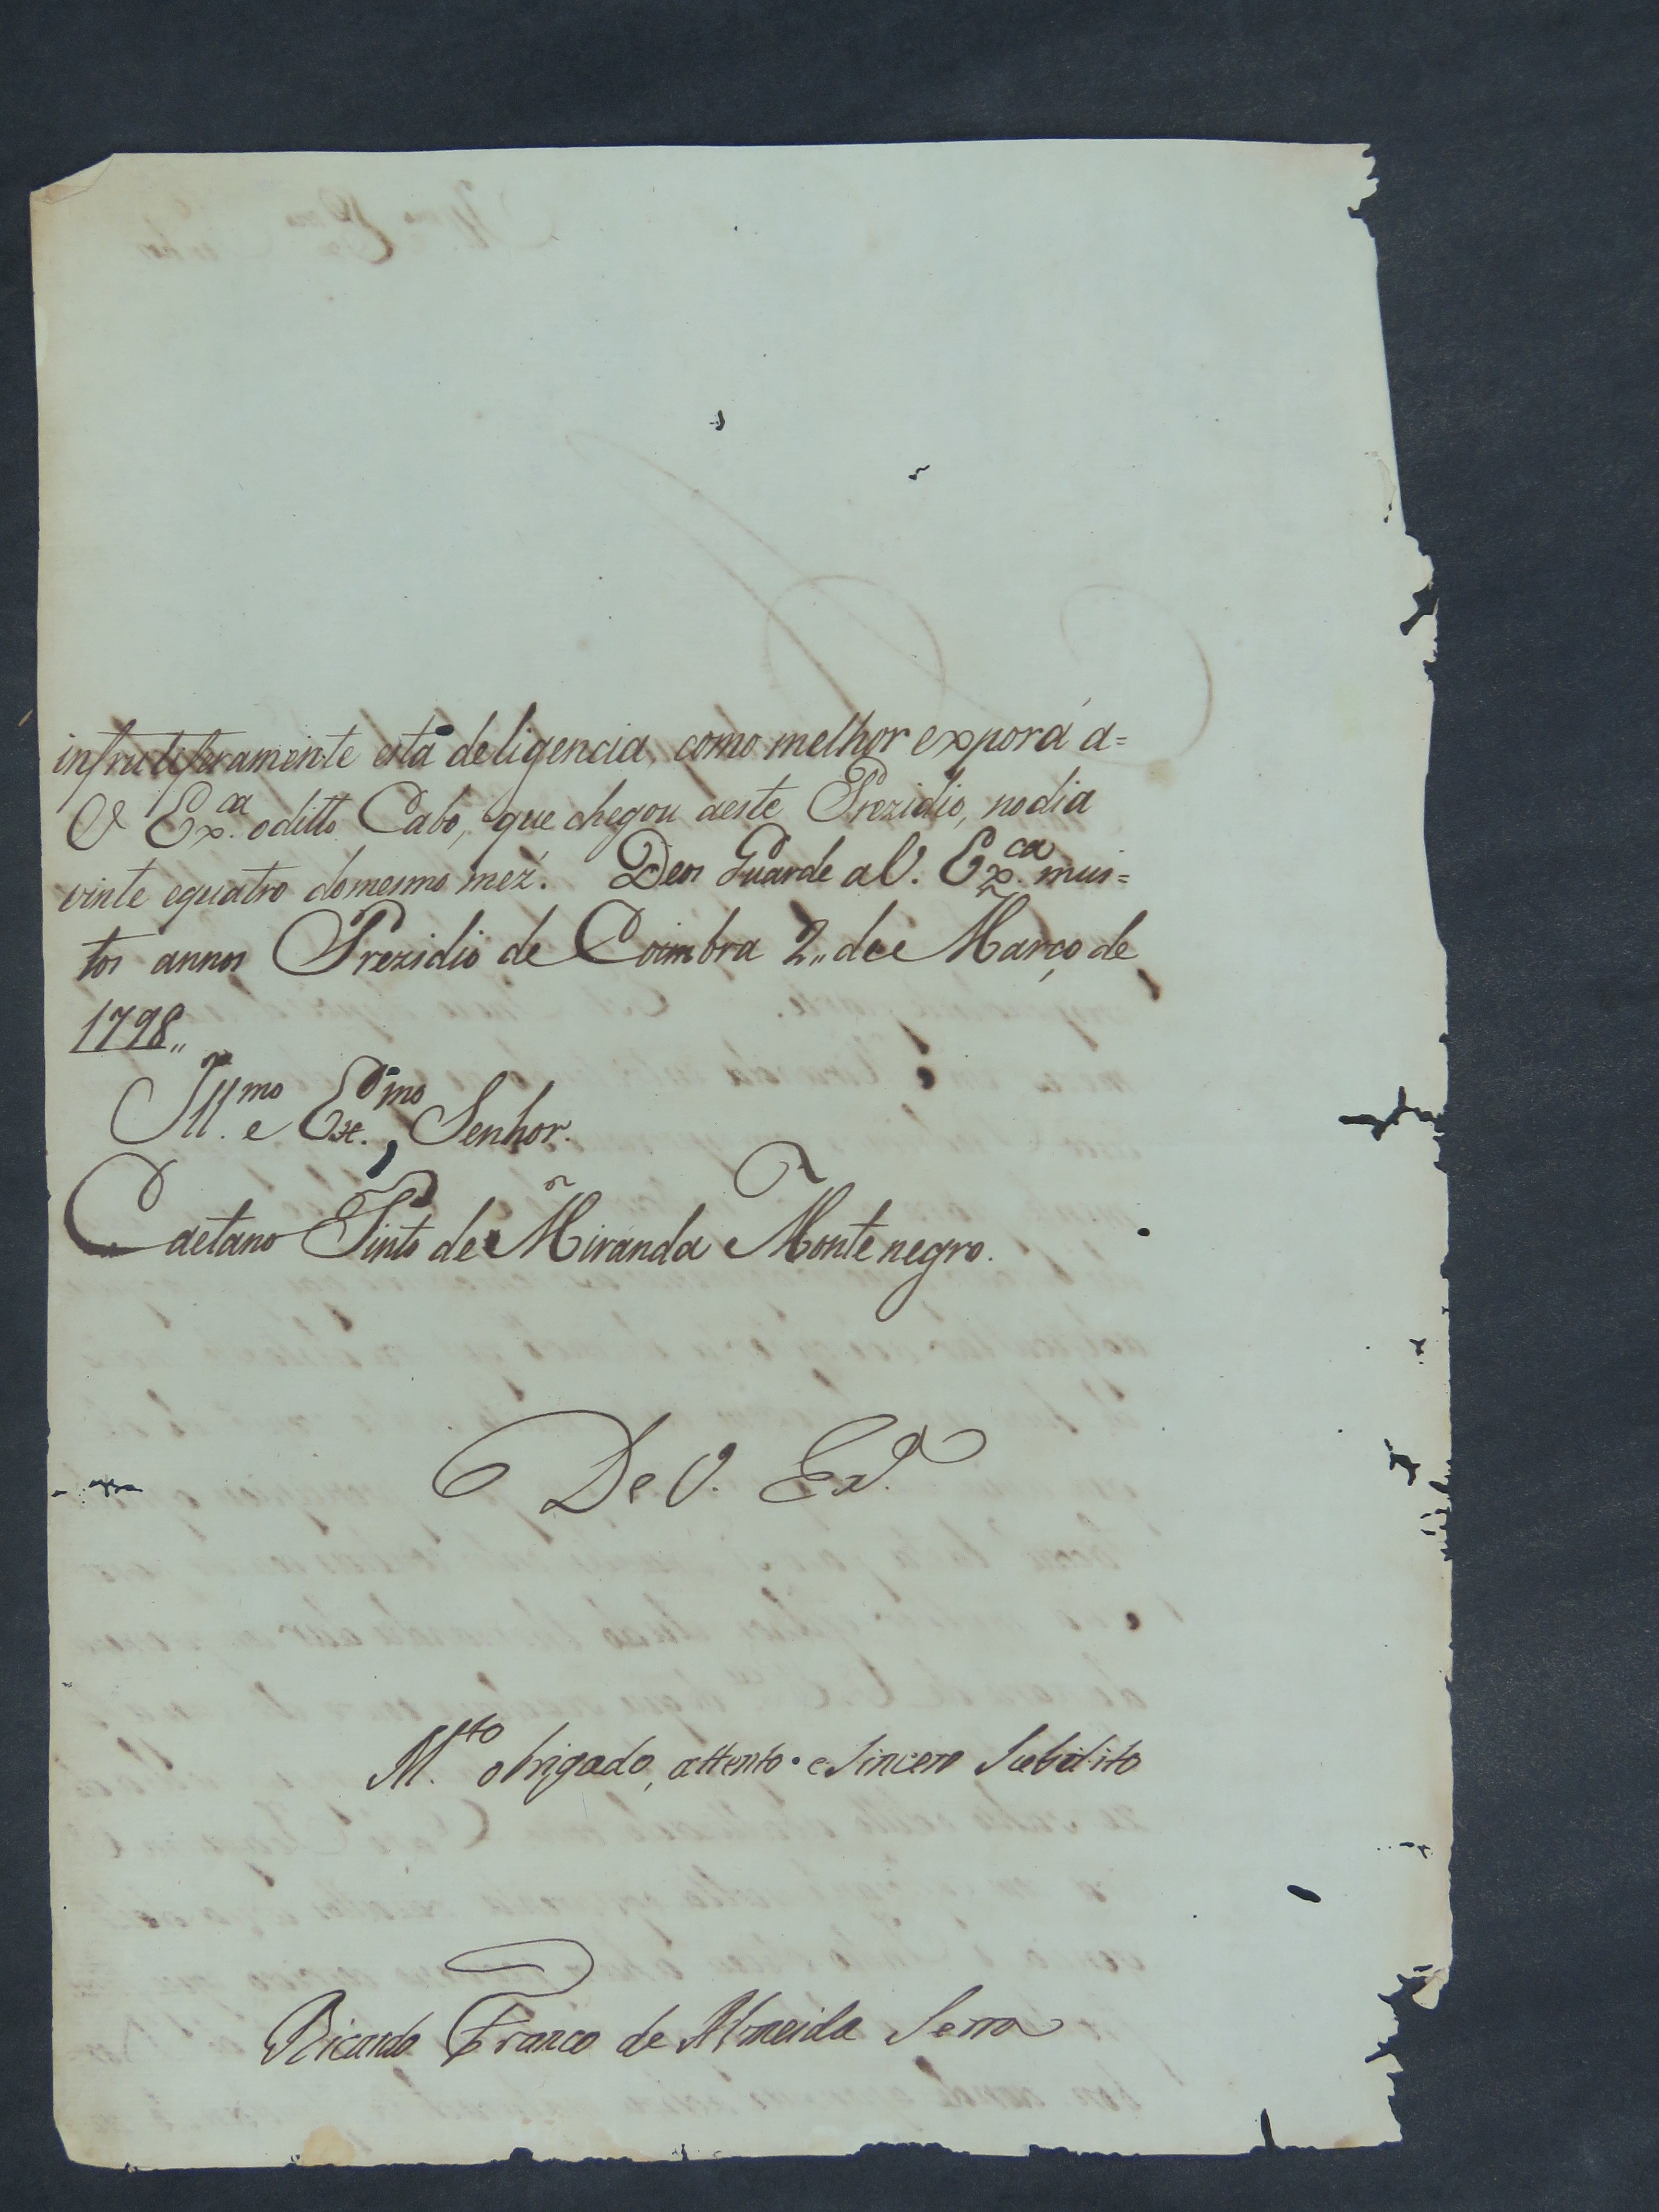 infrutiferamente esta deligencia, como melhor exporá a=
V Ex.ca o ditto Cabo, que chegou aeste Prezidio, nodia
vinte equatro domesmo mez. Deos Guarde a V. Ex.ca mui=
tos annos Prezidio de Coimbra 2,, de Março de
1798,,
Ill.mo e Ex.mo Senhor.
Caetano Pinto de Miranda Montenegro.
De V. Ex.a
M.to obrigado, attento e Sincero Subdito
Ricardo Franco de Almeida Serra